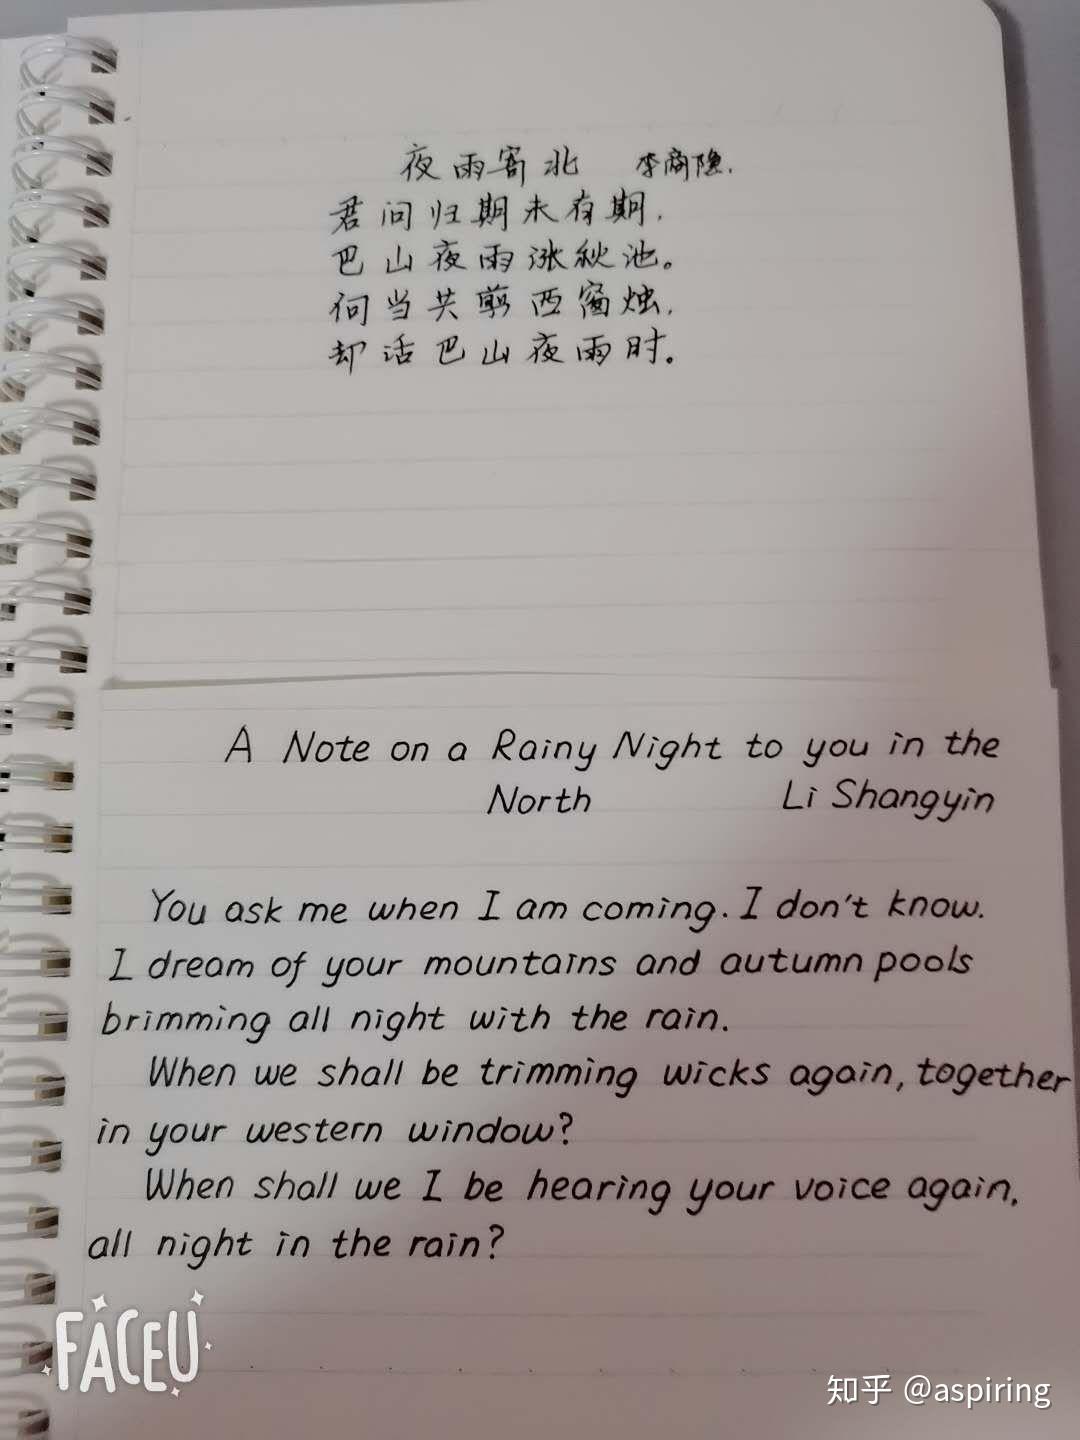 夜雨寄北 李商隐.
君问归期未有期,
巴山夜雨涨秋池。
何当共剪西窗烛,
却话巴山夜雨时。
A Note on a Rainy Night to you in the
North Li Shangyin
You ask me when I am coming. I don't know.
I dream of your mountains and autumn pools
brimming all night with the rain.
When we shall be trimming wicks again, together
in your western window?
When shall we I be hearing your voice again,
all night in the rain?
FACEU
知乎 @aspiring